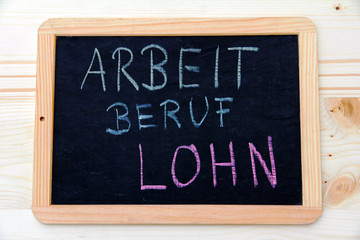 ARBEIT
BERUF
LOHN